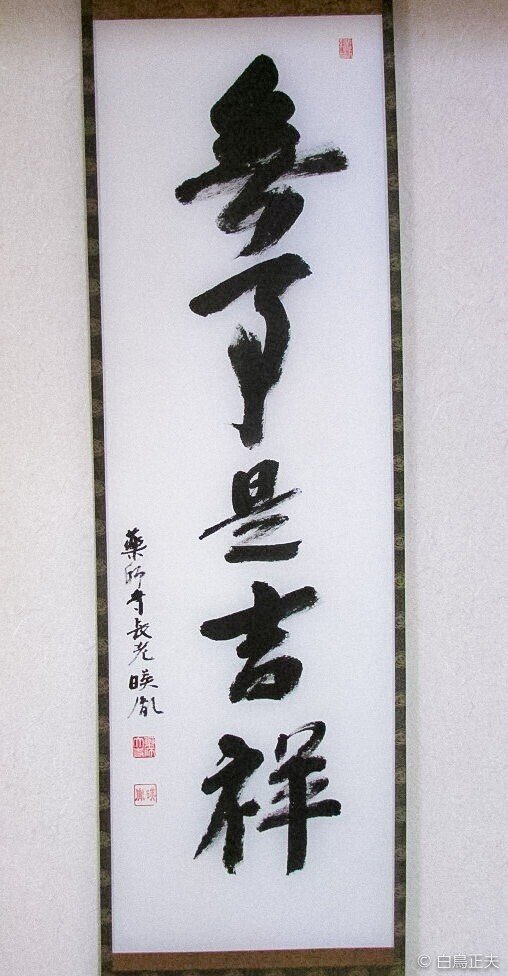 無事是吉祥
藥師寺長老暎胤
© 白鳥正夫